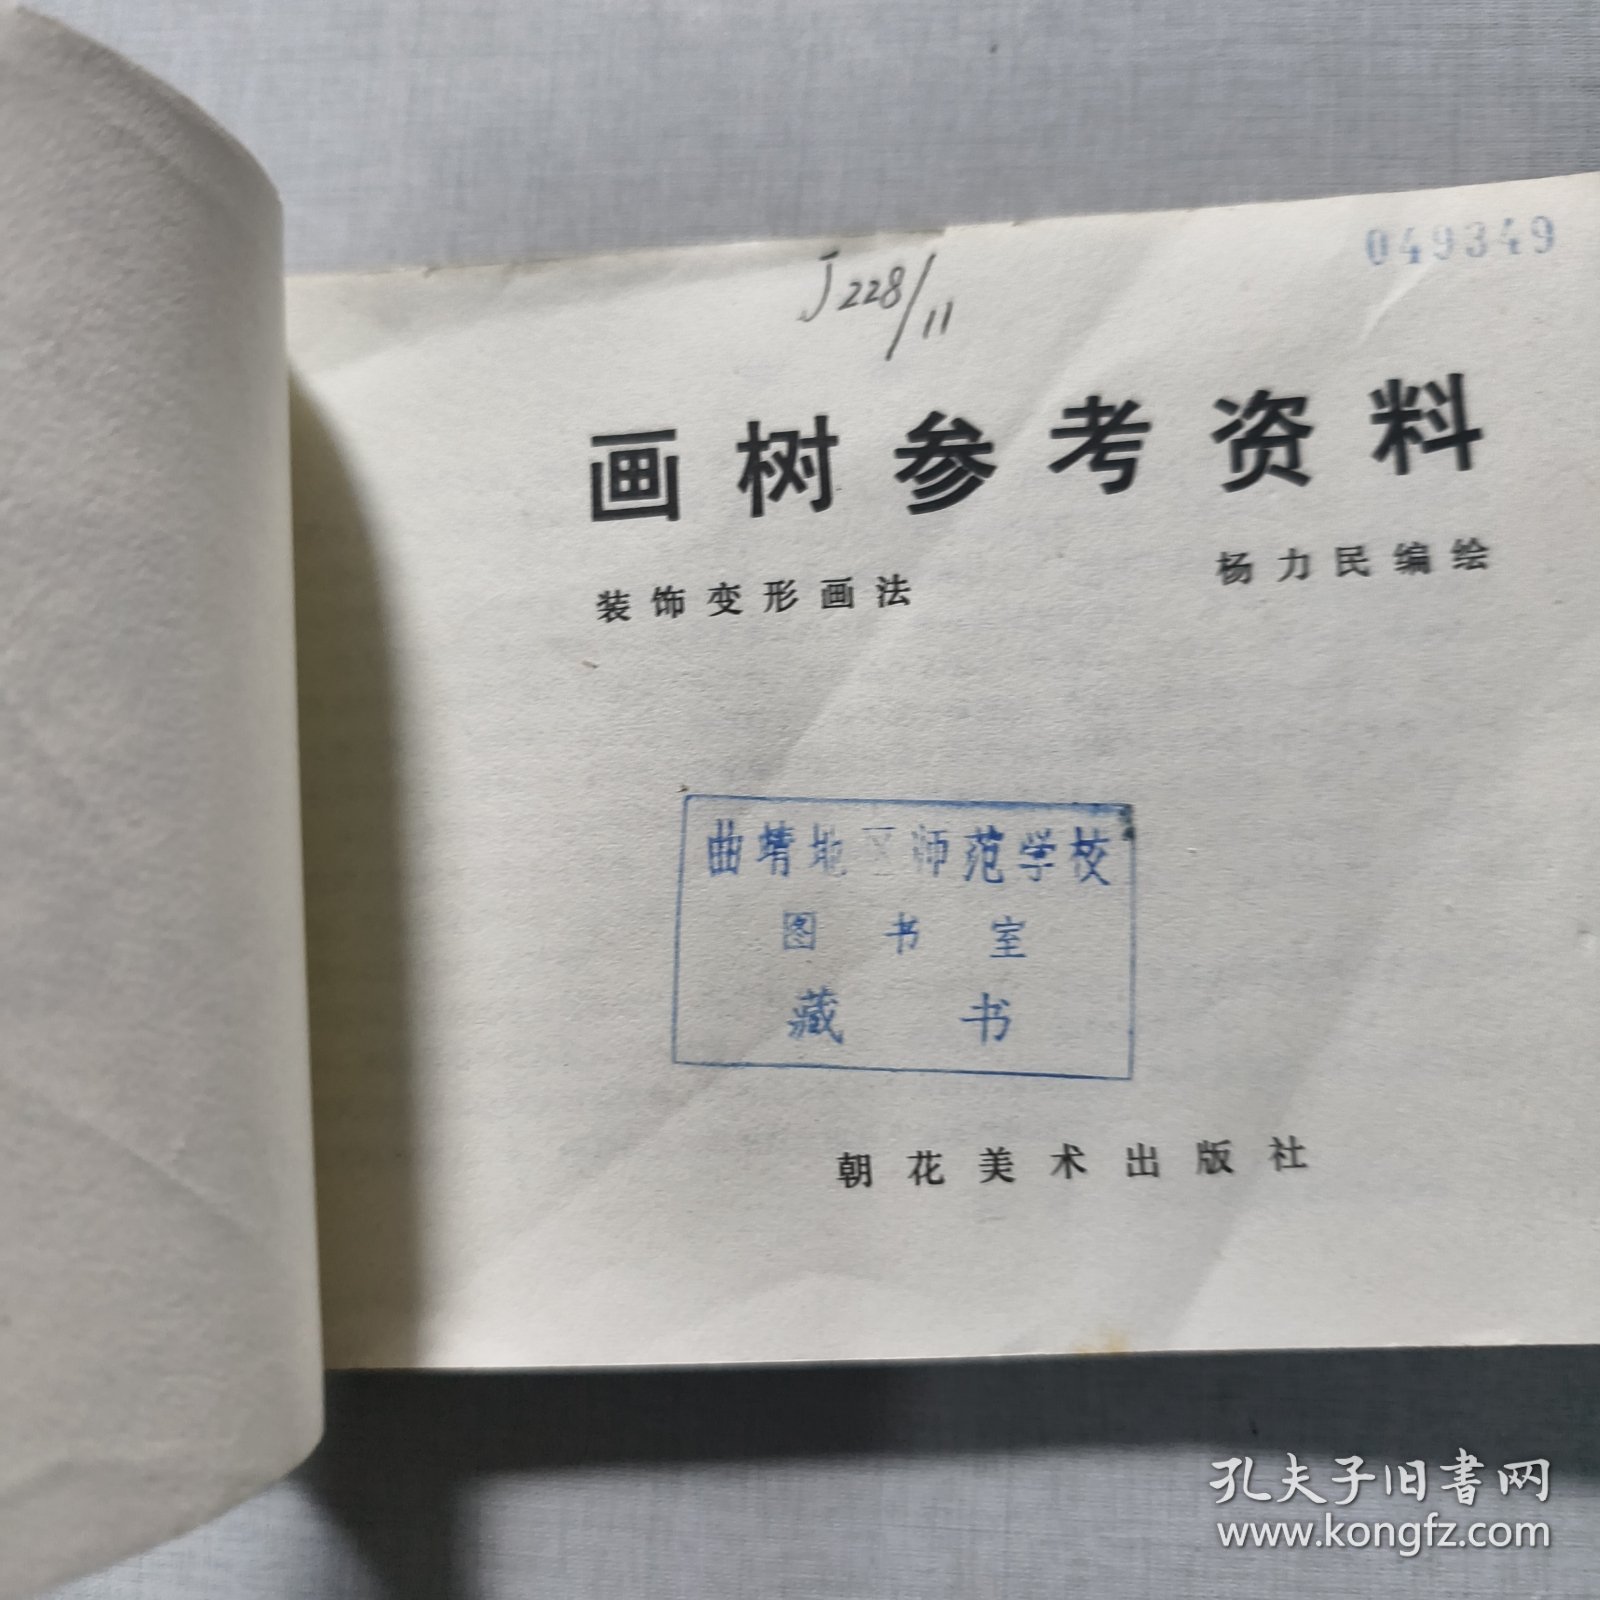 049349
J228/11
画树参考资料
装饰变形画法 杨力民编绘
曲靖地区师范学校
图书室
藏书
朝花美术出版社
孔夫子旧書网
www.kongfz.com